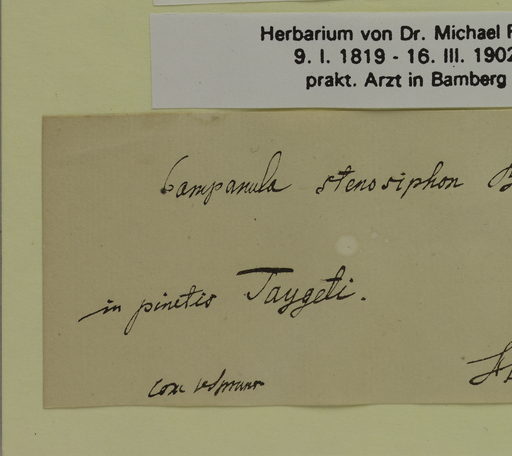 Herbarium von Dr. Michael
9. I. 1819 - 16. III. 1902
prakt. Arzt in Bamberg
Campanula stenosiphon
in pinetis Taygeti.